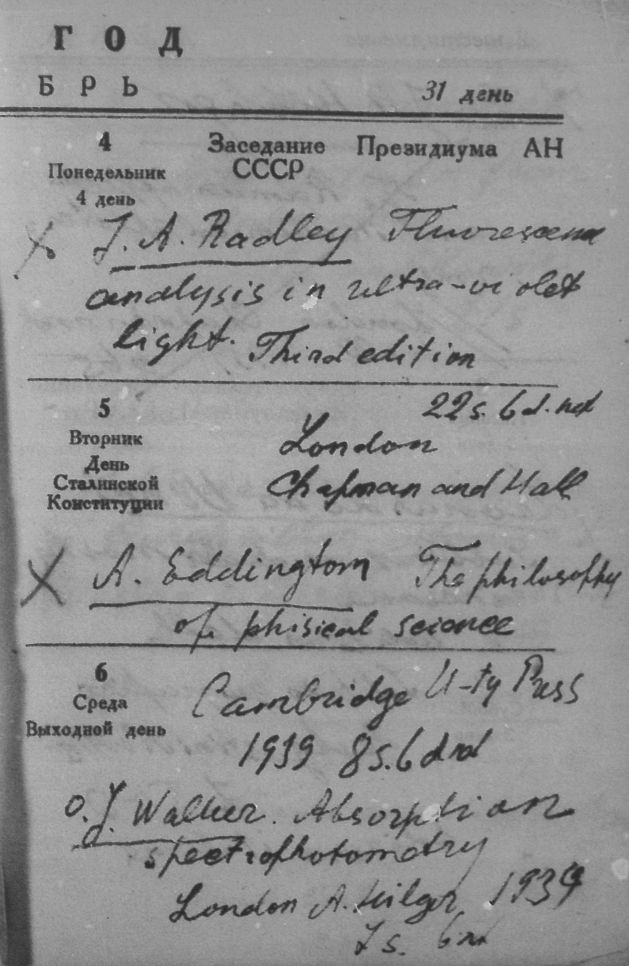 ГОД
БРЬ
31 день
4 Заседание Президиума АН
Понедельник СССР
4 день
X J. A. Radley Fluorescence
analysis in ultra-violet
light. Third edition
5 22s. 6d. net
Вторник London
День
Сталинской Chapman and Hall
Конституции
X A. Eddington The philosophy
of phisical science
6 Cambridge U-ty Press
Среда
Выходной день
1939 8s. 6d
O. J. Walker. Absorption
spectrophotometry
London A. Hilger 1939
7s. 6d